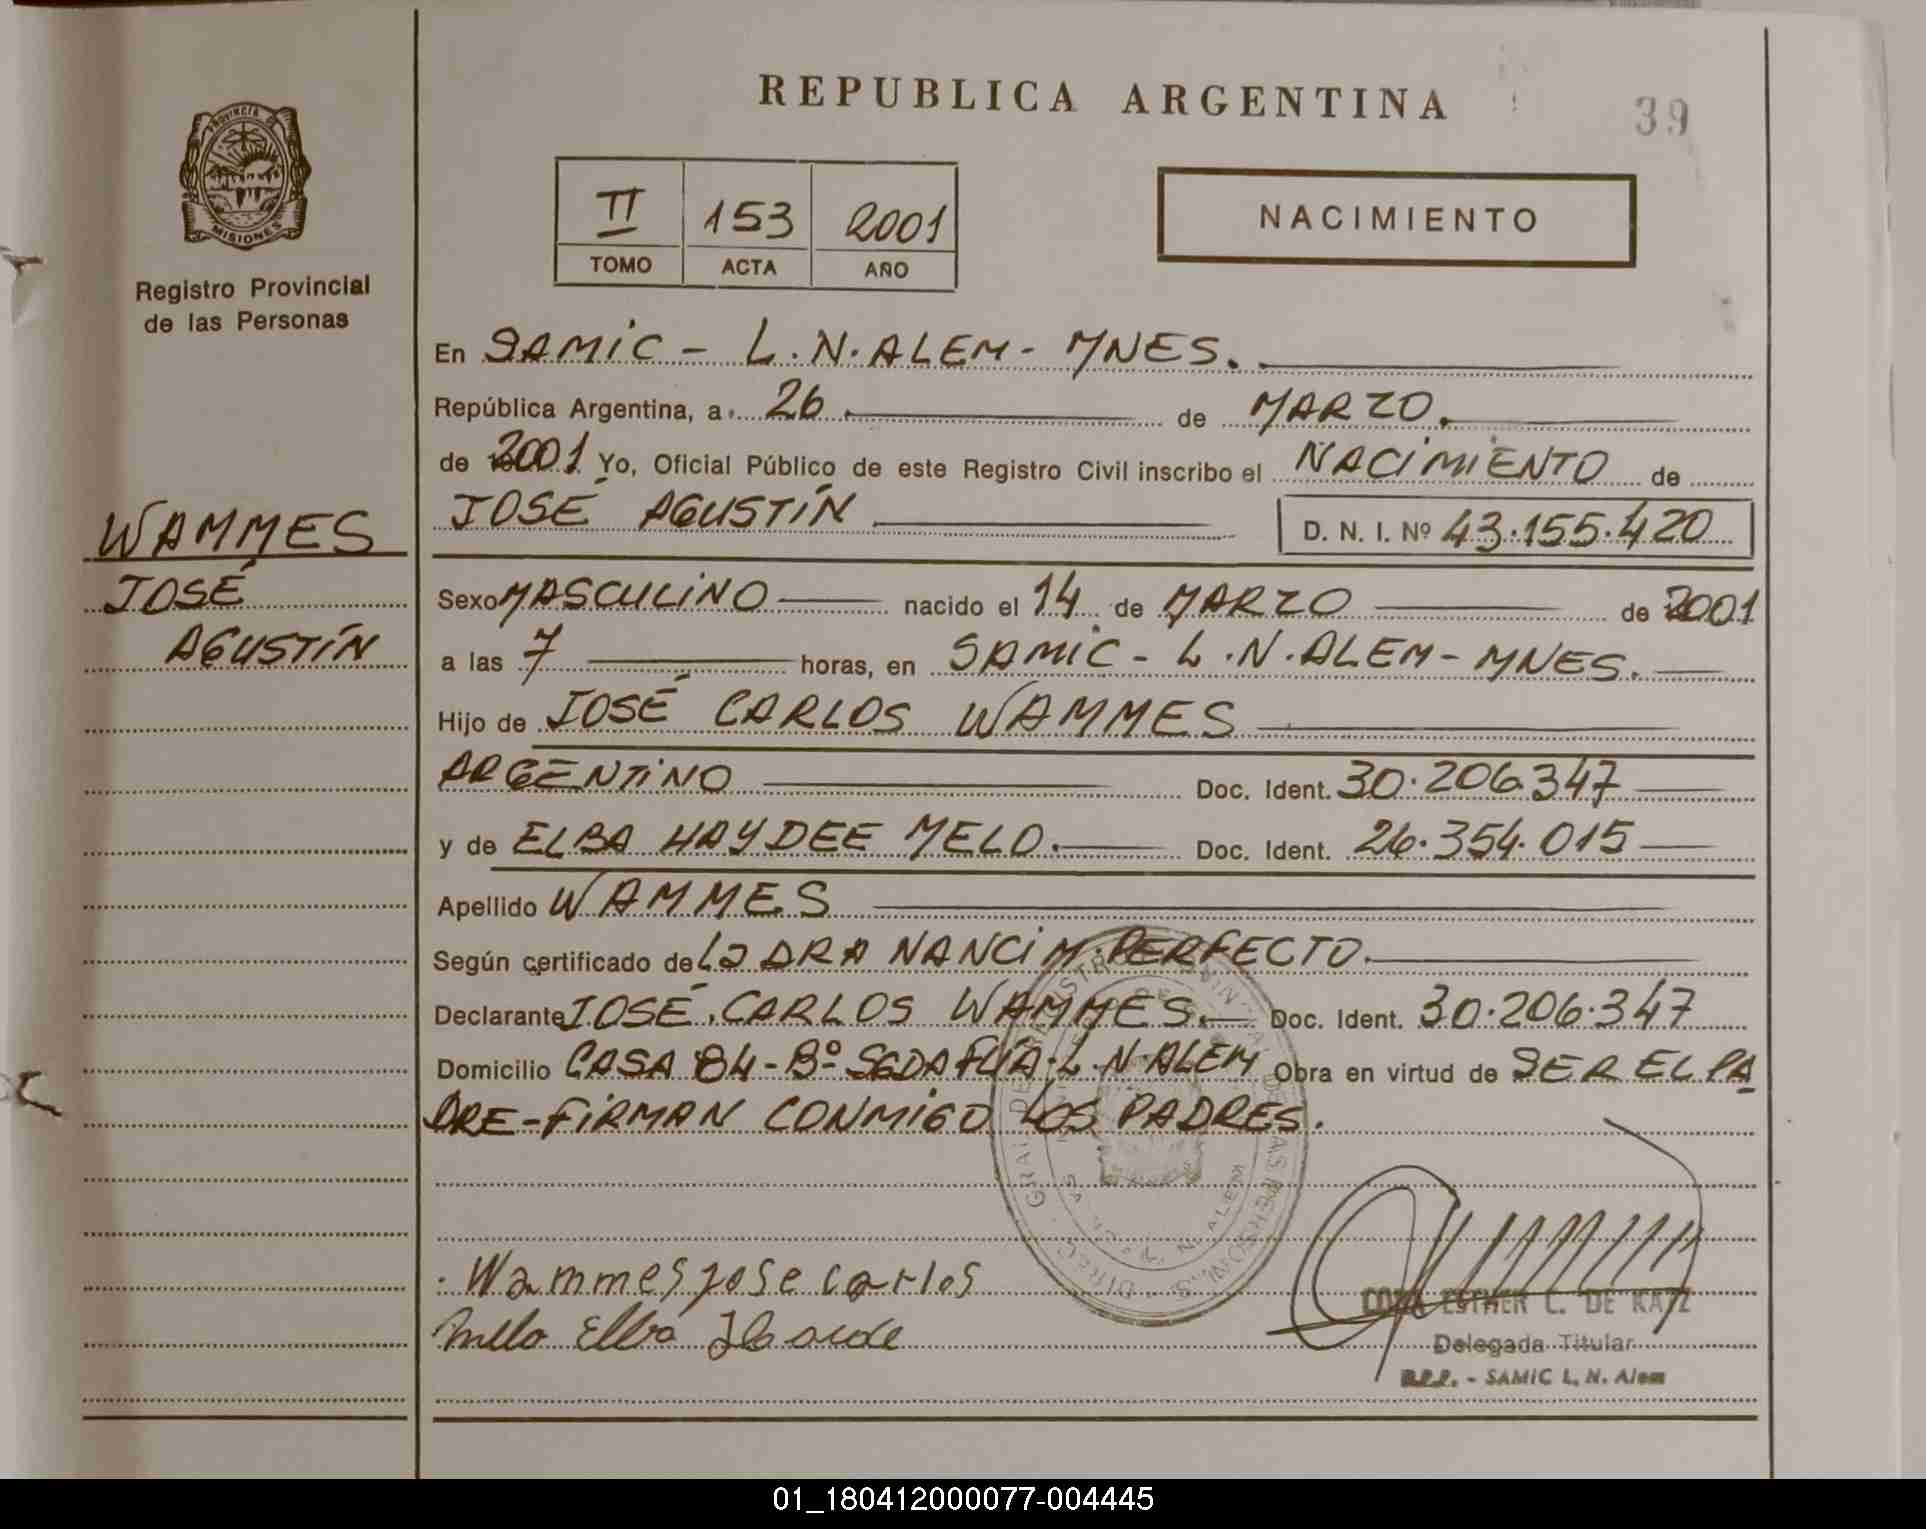 REPUBLICA ARGENTINA
39
PROVINCIA DE
MISIONES
Registro Provincial
de las Personas
II 153 2001
TOMO ACTA AÑO
NACIMIENTO
En SAMIC - L.N. ALEM - MNES.
República Argentina, a 26 de MARZO.
de 2001 Yo, Oficial Público de este Registro Civil inscribo el NACIMIENTO de
JOSÉ AGUSTÍN D. N. I. Nº 43.155.420
WAMMES
JOSÉ
AGUSTÍN
Sexo MASCULINO nacido el 14 de MARZO de 2001
a las 7 horas, en SAMIC - L.N. ALEM - MNES.
Hijo de JOSÉ CARLOS WAMMES
ARGENTINO Doc. Ident. 30.206.347
y de ELBA HAYDEE MELO. Doc. Ident. 26.354.015
Apellido WAMMES
Según certificado de La DRA NANCI M. PERFECTO.
Declarante JOSÉ CARLOS WAMMES. Doc. Ident. 30.206.347
Domicilio CASA 84 - Bº L.N. ALEM Obra en virtud de SER EL PA
DRE - FIRMAN CONMIGO LOS PADRES.
Wammes jose carlos
Mello Elba
ESTHER C. DE KATZ
Delegada Titular
R.P.P. - SAMIC L. N. Alem
01_180412000077-004445